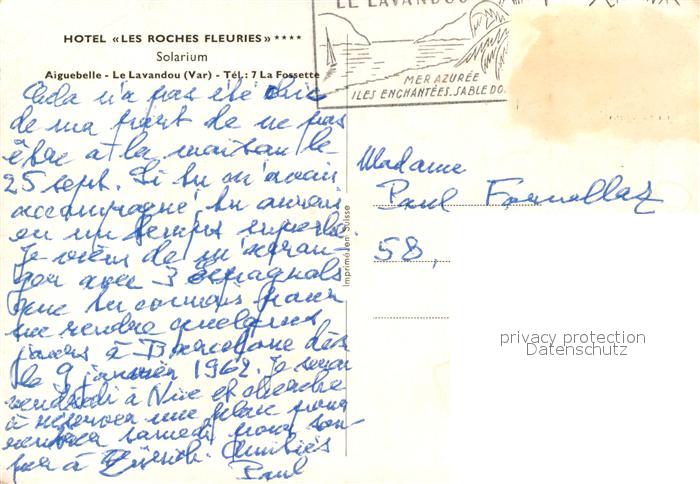 HOTEL «LES ROCHES FLEURIES» ****
Solarium
Aiguebelle - Le Lavandou (Var) - Tél.: 7 La Fossette
LE LAVANDOU
MER AZURÉE
ILES ENCHANTÉES. SABLE DO
Cela n'a pas été chic
de ma part de ne pas
être à la maison le
25 sept. Si tu m'avais
accompagné tu aurais
eu un temps superbe.
Je viens de m'arran-
ger avec 3 espagnols
que tu connais pour
me rendre quelques
jours à Barcelone dès
le 9 janvier 1962. Je serai
vendredi à Nice et cherche
à réserver une place pour
rentrer samedi pour sou-
per à Zürich. Amitiés
Paul
Imprimé en Suisse
Madame
Paul
58,
privacy protection
Datenschutz